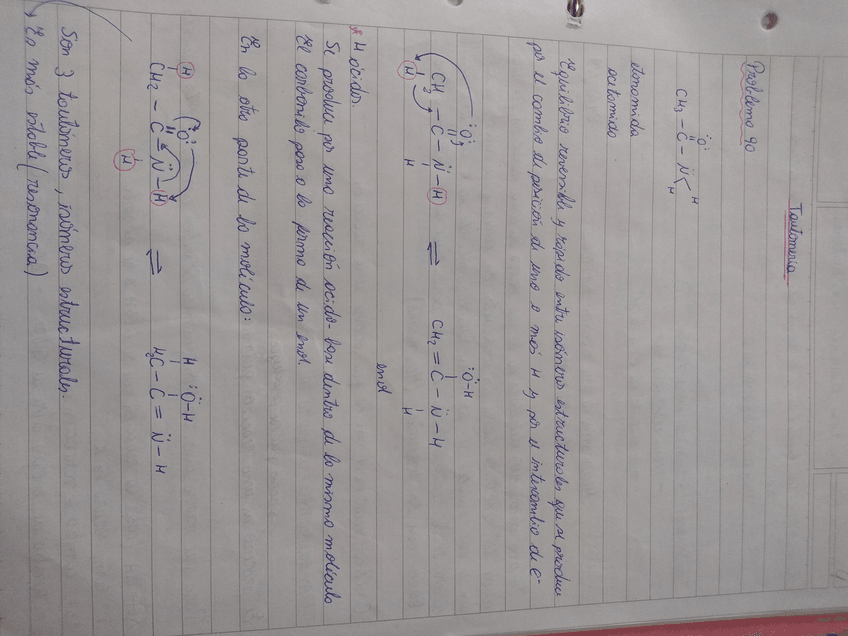 Tautomería
Problema 90
:O:
CH3 - C - N H
H
etanamida
acetamida
Equilibrio reversible y rápido entre isómeros estructurales que se produce
por el cambio de posición de uno o más H y por el intercambio de e-
:O: :Ö-H
CH3 - C - N̈ - H ⇌ CH2 = C - N̈ - H
H H H
enol
* H ácidos.
Se produce por una reacción ácido-base dentro de la misma molécula
El carbonilo pasa a la forma de un enol.
En la otra parte de la molécula:
H :O: H :Ö-H
CH2 - C = N̈ - H ⇌ H2C - C = N̈ - H
H
Son 3 tautómeros, isómeros estructurales.
→ Es más estable (resonancia)